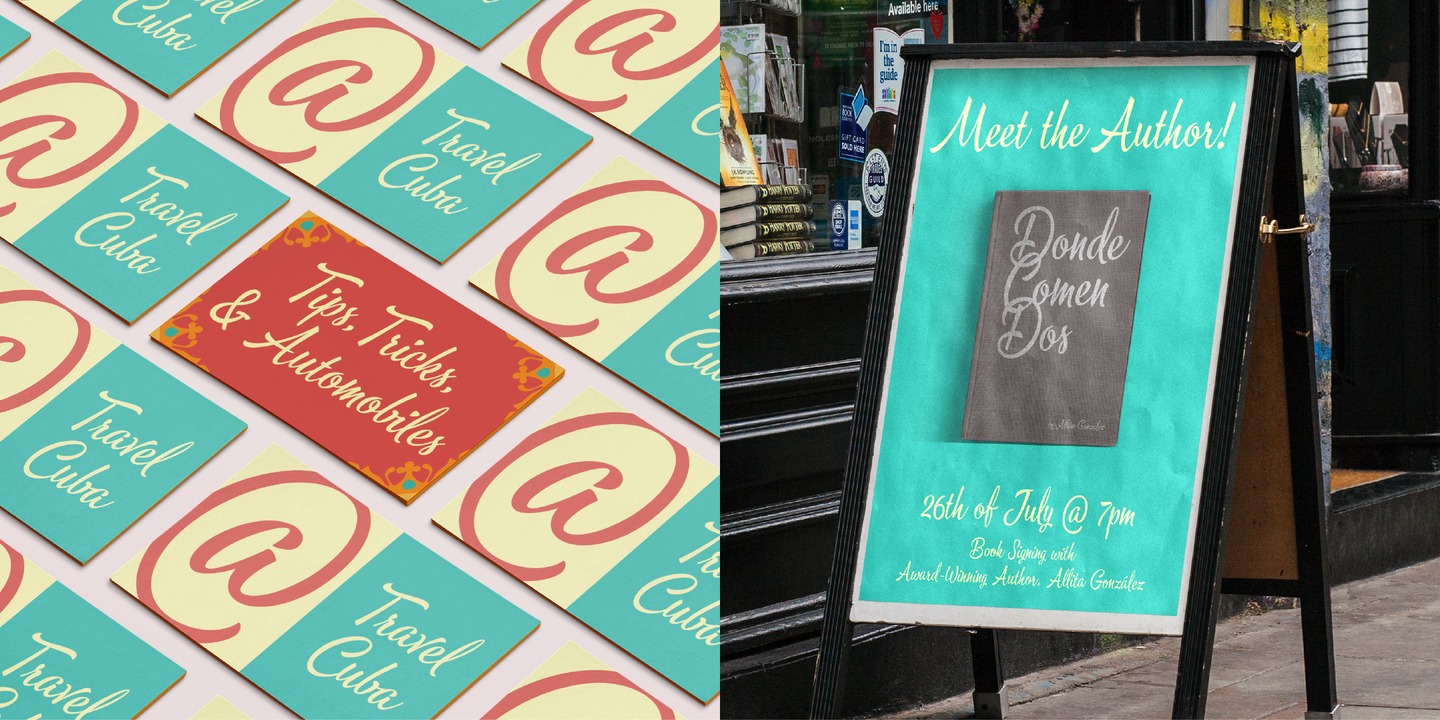 Travel
Cuba
@
Travel
Cuba
@
Travel
Cuba
@
Travel
Cuba
@
Tips, Tricks,
& Automobiles
@
Travel
Cuba
@
Travel
Cuba
@
Travel
Cuba
Available here
I'm in
the
guide
GIFT CARD
SOLD HERE
GUILD
J.K.ROWLING
HARRY POTTER
HARRY POTTER
HARRY POTTER
HARRY POTTER
Meet the Author!
Donde
Comen
Dos
by Allita González
26th of July @ 7pm
Book Signing with
Award-Winning Author, Allita González